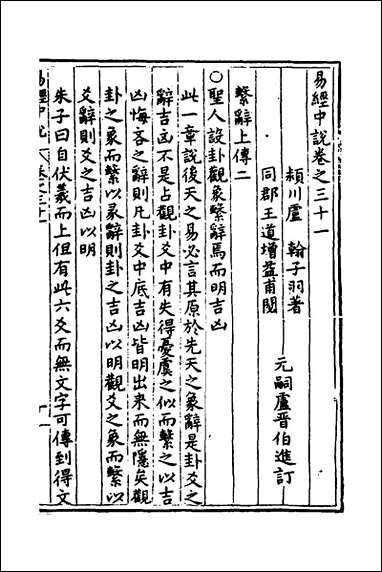 易經中說卷之三十一
潁川盧　翰子羽著
同郡王道增益甫閱
元嗣盧晋伯進訂
繫辭上傳二
○聖人設卦觀象繫辭焉而明吉凶
此一章說後天之易必言其原於先天之象辭是卦爻之
辭吉凶不是占觀卦爻中有失得憂虞之似而繫之以吉
凶悔吝之辭則凡卦爻中底吉凶皆明出來而無隱矣觀
卦之象而繫以彖辭則卦之吉凶以明觀爻之象而繫以
爻辭則爻之吉凶以明
朱子曰自伏羲而上但有此六爻而無文字可傳到得文
易經中說
卷之三十一